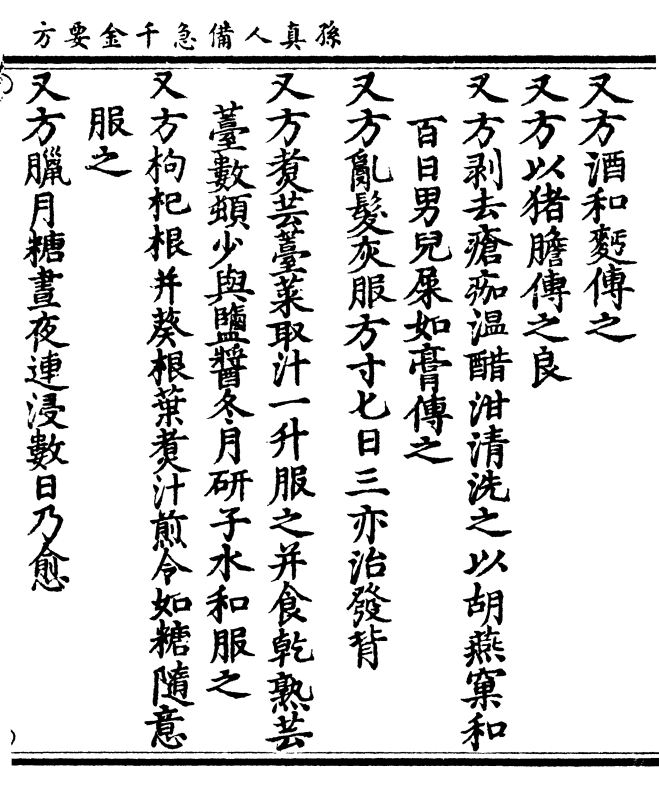 孫真人備急千金要方
又方酒和麪傅之
又方以猪膽傅之良
又方剥去瘡痂温醋泔清洗之以胡燕窠和
百日男兒屎如膏傅之
又方亂髮灰服方寸匕日三亦治發背
又方煑芸薹菜取汁一升服之并食乾熟芸
薹數頓少與鹽醬冬月研子水和服之
又方枸杞根并葵根葉煑汁煎令如糖隨意
服之
又方臘月糖晝夜連浸數日乃愈